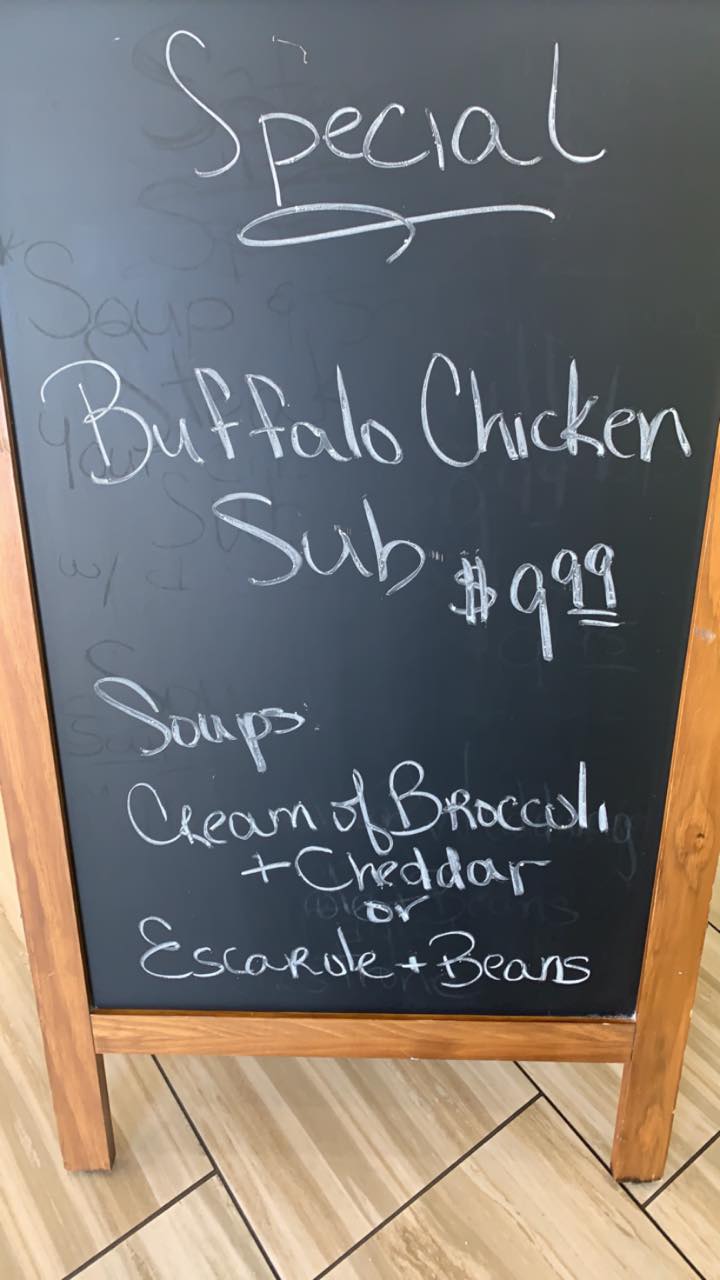 Special
Buffalo Chicken
Sub $9.99
Soups
Cream of Broccoli
+ Cheddar
or
Escarole + Beans